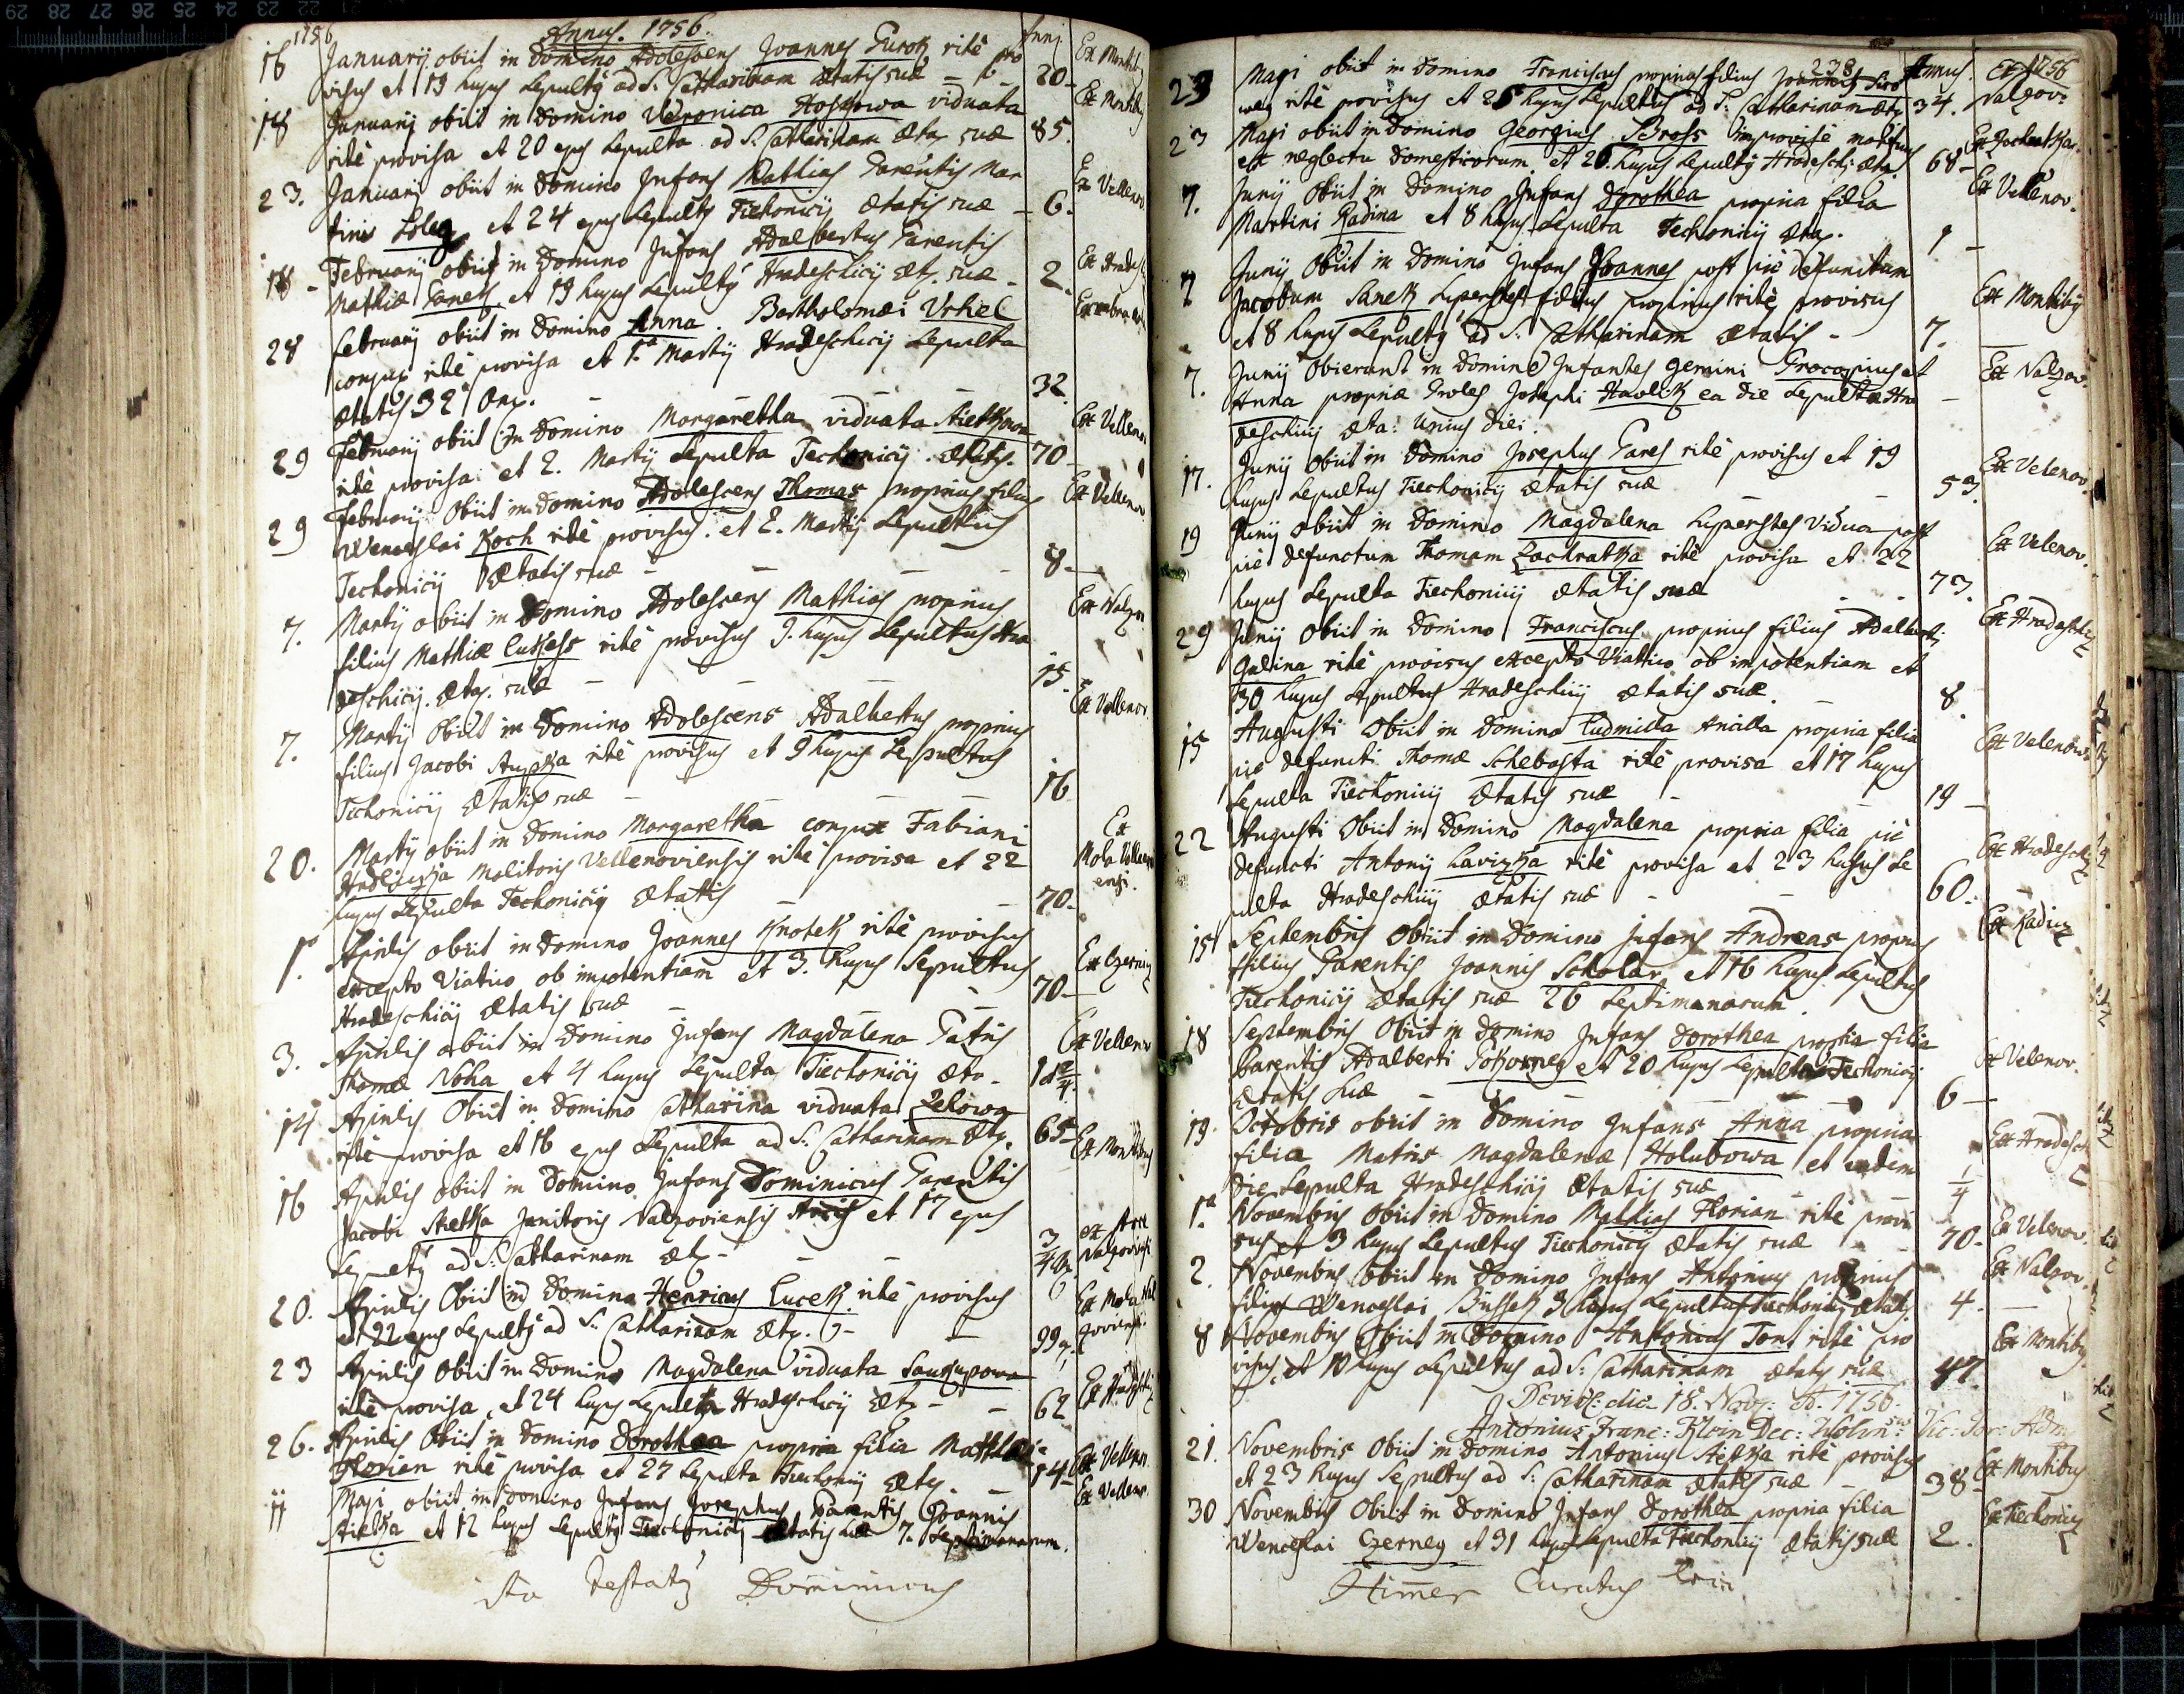 1756
Annus. 1756.
Anni.
16 Januarij obiit in Domino Adolescens Joannes Turek ritè pro
visus et 19 hujus Sepultq ad S: Catharinam ætatis suæ 20 Ex Montib
18 Januarij obiit in Domino Veronica viduata
ritè provisa et 20 ejus Sepulta ad S: Catharinam ætat suæ 85. Ex Montib
23. Januarij obiit in Domino Infans Mathias Parentis Mar
tini et 24 ejus Sepultq Tiechonicij ætatis suæ 6. Ex Vellenov
18 Februarij obiit in Domino Infans Adalbertus Parentis
Mathiæ et 19 hujus Sepultq Hradeschicij æt. suæ 2. Ex Hrade
28 Februarij obiit in Domino Anna. Bartholomæi Vrhel
conjux ritè provisa et 1.a Martij Hradeschicij Sepulta
ætatis 32 32.
29 Februarij obiit in Domino Margaretha viduata
ritè provisa et 2. Martij Sepulta Techonicij ætatis. 70 Ex Velleno
29 Februarij Obiit in Domino Adolescens Thomas proprius filius
Wenceslai Koch ritè provisus. et 2. Martij Sepultus
Techonicij Ætatis suæ 8 Ex Vellenov
7. Martij obiit in Domino Adolescens Mathias proprius
filius Mathiæ ritè provisus 9. hujus Sepultus Hra
deschicij. ætat. suæ 15. Ex Nalzov
7. Martij Obiit in Domino Adolescens Adalbertus proprius
filius Jacobi ritè provisus et 9 hujus Sepultus
Tichonicij Ætatis suæ 16 Ex Vellenov
20. Martij obiit in Domino Margaretha conjux Fabiani
Molitoris Vellenoviensis ritè provisa et 22
hujus Sepulta Techonicij ætatis 70. Ex Mola Vellenov
ensi.
1.a Aprilis obiit in Domino Joannes Knotek ritè provisus
excepto Viatico ob impotentiam et 3. hujus Sepultus
Hradeschicij ætatis suæ 70 Ex Czernicz
3. Aprilis obiit in Domino Infans Magdalena Patris
Thomæ Noha et 4 hujus Sepulta Tiechonicij æta. Ex Vellenov
14 Aprilis Obiit in Domino Catharina viduata
ritè provisa et 16 ejus Sepulta ad S: Catharinam æt. 65 Ex Montibus
16 Aprilis obiit in Domino Infans Dominicus Parentis
Jacobi Janitoris Nalzoviensis Arcis et 17 ejus
Sepultq ad S: Catharinam æt. Ex Arce
Nalzoviensi
20. Aprilis Obiit in Domino Henricus ritè provisus
et 22 ejus Sepultq ad S: Catharinam æt. 99 Ex Mola
23 Aprilis Obiit in Domino Magdalena viduata
ritè provisa, et 24 hujus Sepulta Hradeschicij æt. 62
26. Aprilis Obiit in Domino Dorothea propria filia Mathiæ
Florian ritè provisa et 27 Sepulta Tiechonicij æt. 14 Ex Vellenov
11 Maji obiit in Domino Infans Josephus Parentis Joannis
et 12 hujus Sepultq Tiechonicij ætatis suæ 7. Septimanarum. Ex Vellenov
Ita testatq Dominicus
238
Annus. 1756
23 Maji obiit in Domino Franciscus proprius filius
ritè provisus et 25 hujus Sepultus ad S: Catharinam æt. 34. Ex Nalzov.
23 Maji obiit in Domino Georgius Bross improvisè
ex neglectu Domesticorum et 26. hujus Sepultq Hradeschi: æta. 68
7. Junij Obiit in Domino Infans Dorothea propria filia
Martini Radina et 8 hujus Sepulta Techonicij ætat. 1 Ex Vellenov.
7 Junij Obiit in Domino Infans Joannes post piè defunctum
Jacobum Superstes filius proprius ritè provisus
et 8 hujus Sepultq ad S: Catharinam ætatis 7. Ex Montibus
7. Junij Obierunt in Domino Infantes Gemini Procopius et
Anna propriæ Proles Josephi Havlik ea die Sepultæ Hra
deschicij æta: unius diei. Ex Nalzov.
17. Junij Obiit in Domino Josephus ritè provisus et 19
hujus Sepultus Tiechonicij ætatis suæ 53. Ex Velenov.
19 Junij obiit in Domino Magdalena Superstes Vidua post
piè defunctum Thomam ritè provisa et 22
hujus Sepulta Tiechonicij ætatis suæ 73. Ex Velenov.
29 Junij Obiit in Domino Franciscus proprius filius Adalberti
ritè provisus excepto Viatico ob impotentiam et
30 hujus Sepultus Hradeschicij ætatis suæ. 8. Ex Hradeschicz
15 Augusti Obiit in Domino Ludmilla Ancilla propria filia
piè defuncti Thomæ Schebasta ritè provisa et 17 hujus
Sepulta Tiechonicij ætatis suæ 19 Ex Velenov
22 Augusti Obiit in Domino Magdalena propria filia piè
defuncti Antonij ritè provisa et 23 hujus Se
pulta Hradeschicij ætatis suæ 60. Ex Hradeschicz
15 Septembris Obiit in Domino Infans Andreas proprius
filius Parentis Joannis Scholar, et 16 hujus Sepultus
Tiechonicij ætatis suæ 26 Septimanarum. Ex Radicz
18 Septembris Obiit in Domino Infans Dorothea propria filia
Parentis Adalberti et 20 hujus Sepulta Techonicij
ætatis suæ 6 Ex Velenov.
19 Octobris obiit in Domino Infans Anna propria
filia Matris Magdalenæ Holubowa et eadem
die Sepulta Hradeschicij ætatis suæ 1/4 Ex Hradesch
1.a Novembris Obiit in Domino Mathias Florian ritè provi
sus et 3 hujus Sepultus Tiechonicij ætatis suæ 70. Ex Velenov.
2. Novembris obiit in Domino Infans Antonius proprius
filius Wenceslai 3 hujus Sepultus Tiechonicij ætatis 4. Ex Nalzov.
8 Novembris Obiit in Domino Antonius Tont ritè pro
visus, et 10 hujus Sepultus ad S: Catharinam ætatis suæ 47. Ex Montibus
die 18. Nov: A. 1756.
Antonius Franc: Klein Dec:
21. Novembris Obiit in Domino Antonius ritè provisus
et 23 hujus Sepultus ad S: Catharinam ætatis suæ 38 Ex Montibus
30 Novembris Obiit in Domino Infans Dorothea propria filia
Wenceslai Czerney et 31 hujus Sepulta Tiechonicij ætatis suæ 2. Ex Tiechonicz
Curatus